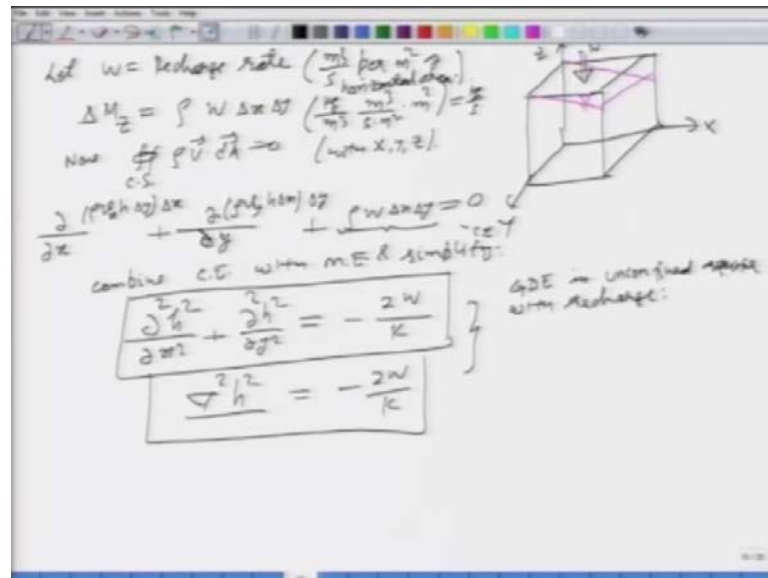 Let W = Recharge rate (m³/s per m² of horizontal area)
ΔM_z = ρ W Δx Δy (kg/m³ m³/s·m² · m²) = kg/s
Now ∯ ρ V⃗ dA⃗ = 0 (with X, Y, Z)
C.S.
∂(ρV_x h Δy) Δx / ∂x + ∂(ρV_y h Δx) Δy / ∂y + ρ W Δx Δy = 0 - C.E
combine C.E. with M.E & simplify:
∂²h²/∂x² + ∂²h²/∂y² = - 2W/K
GDE in unconfined aquifer with recharge:
∇²h² = - 2W/K
Z
W
X
Y